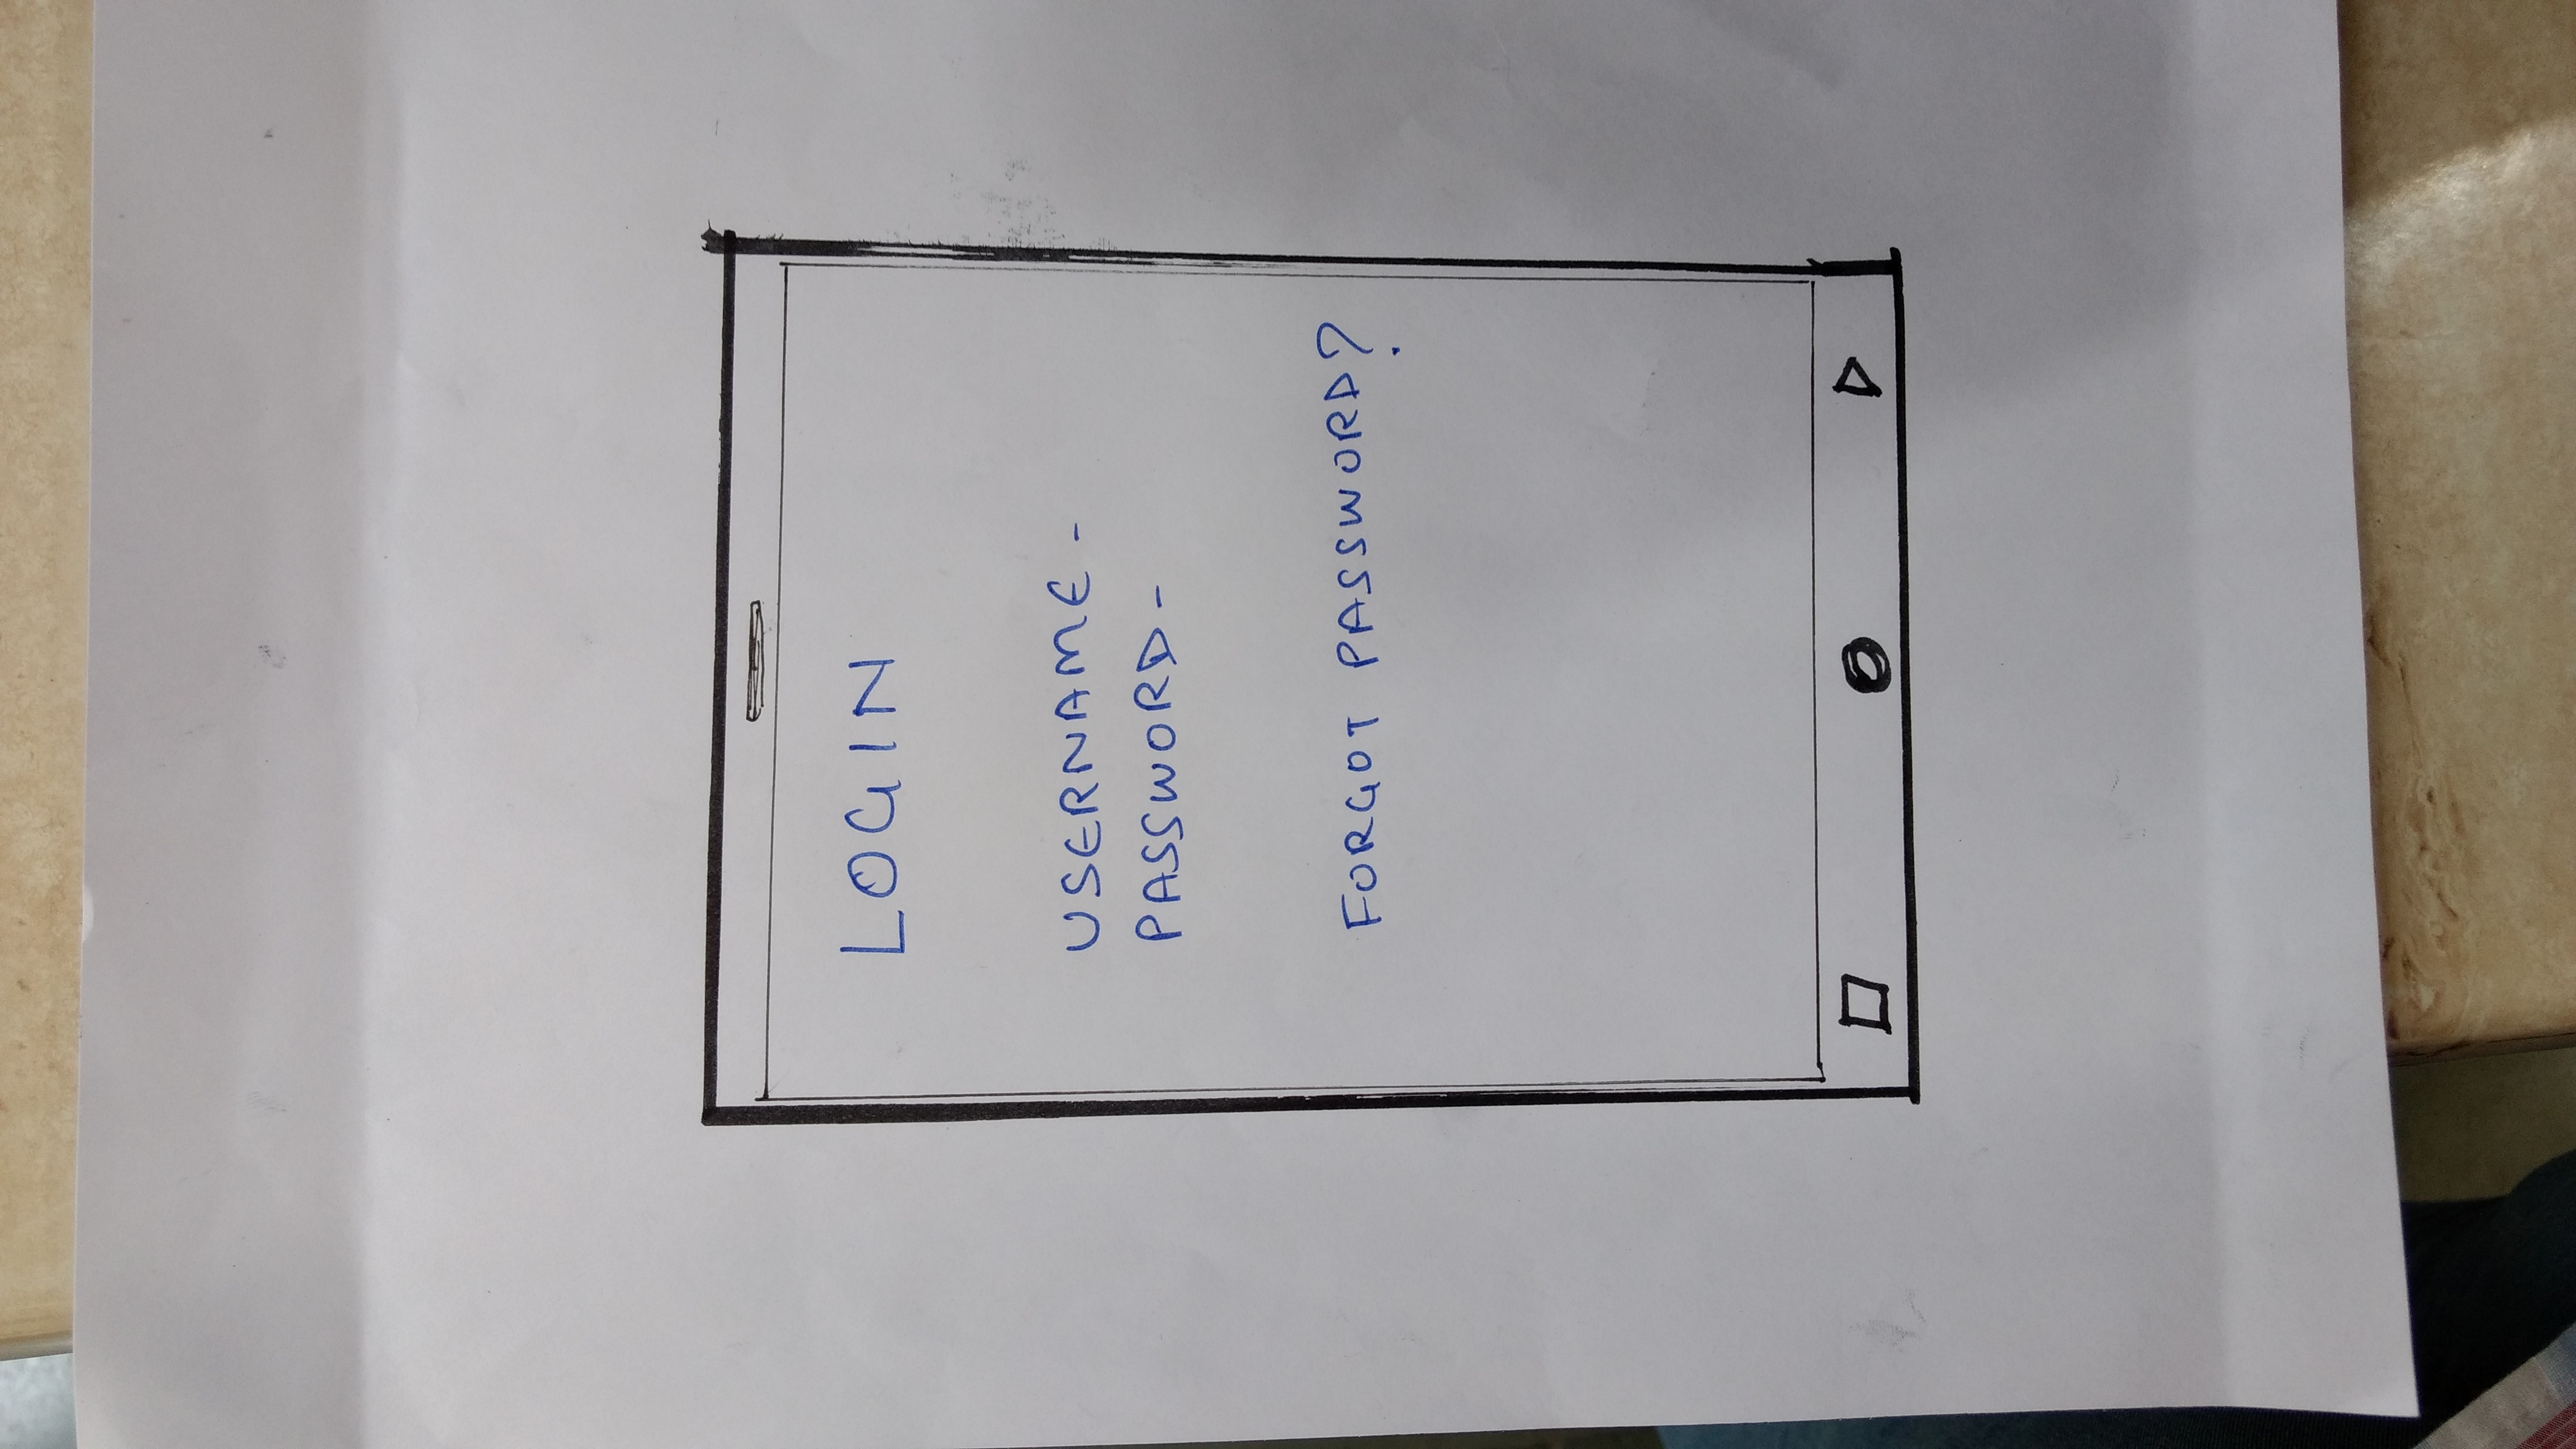 LOGIN
USERNAME -
PASSWORD -
FORGOT PASSWORD?